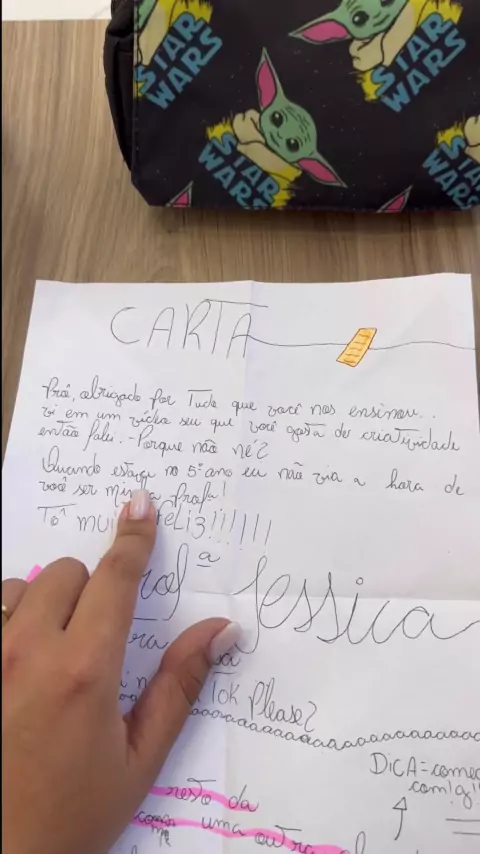 STAR WARS
STAR WARS
STAR WARS
STAR WARS
CARTA
Prô, obrigado por Tudo que você nos ensinou..
vi em um vídeo seu que você gosta de criatividade
então falei.. - Porque não né?
Quando estava no 5º ano eu não via a hora de
você ser minha Profa!
Tô MUI FELIZ!!!!!!
rofª Jessica
ra
Tok Please?
aaaaaaaaaaaaaaaaaaaaaaa
DICA = começ
com!g!!
resto da
uma outra
me